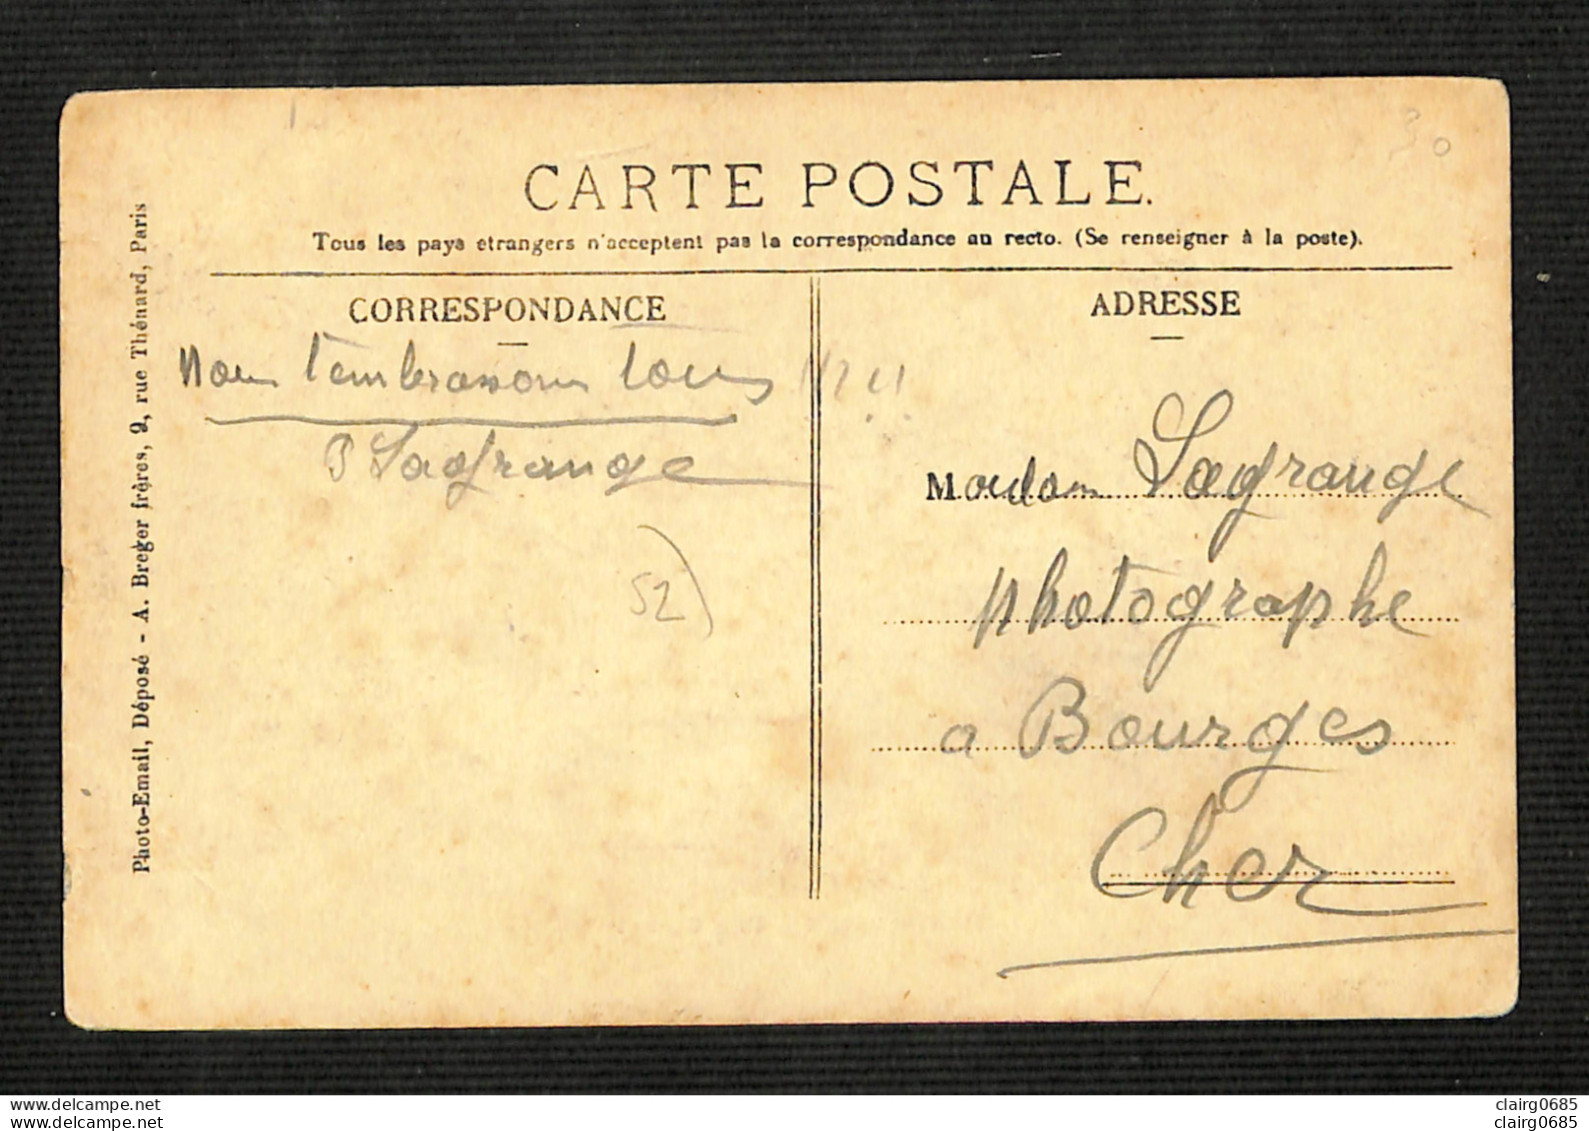 30
CARTE POSTALE.
Tous les pays etrangers n'acceptent pas la correspondance au recto. (Se renseigner à la poste).
CORRESPONDANCE
Nous t'embrassons tous
P Lagrange
52
ADRESSE
Madam Lagrange
photographe
a Bourges
Cher
Photo-Email, Déposé - A. Breger frères, 9, rue Thénard, Paris
www.delcampe.net
www.delcampe.net
clairg0685
clairg0685